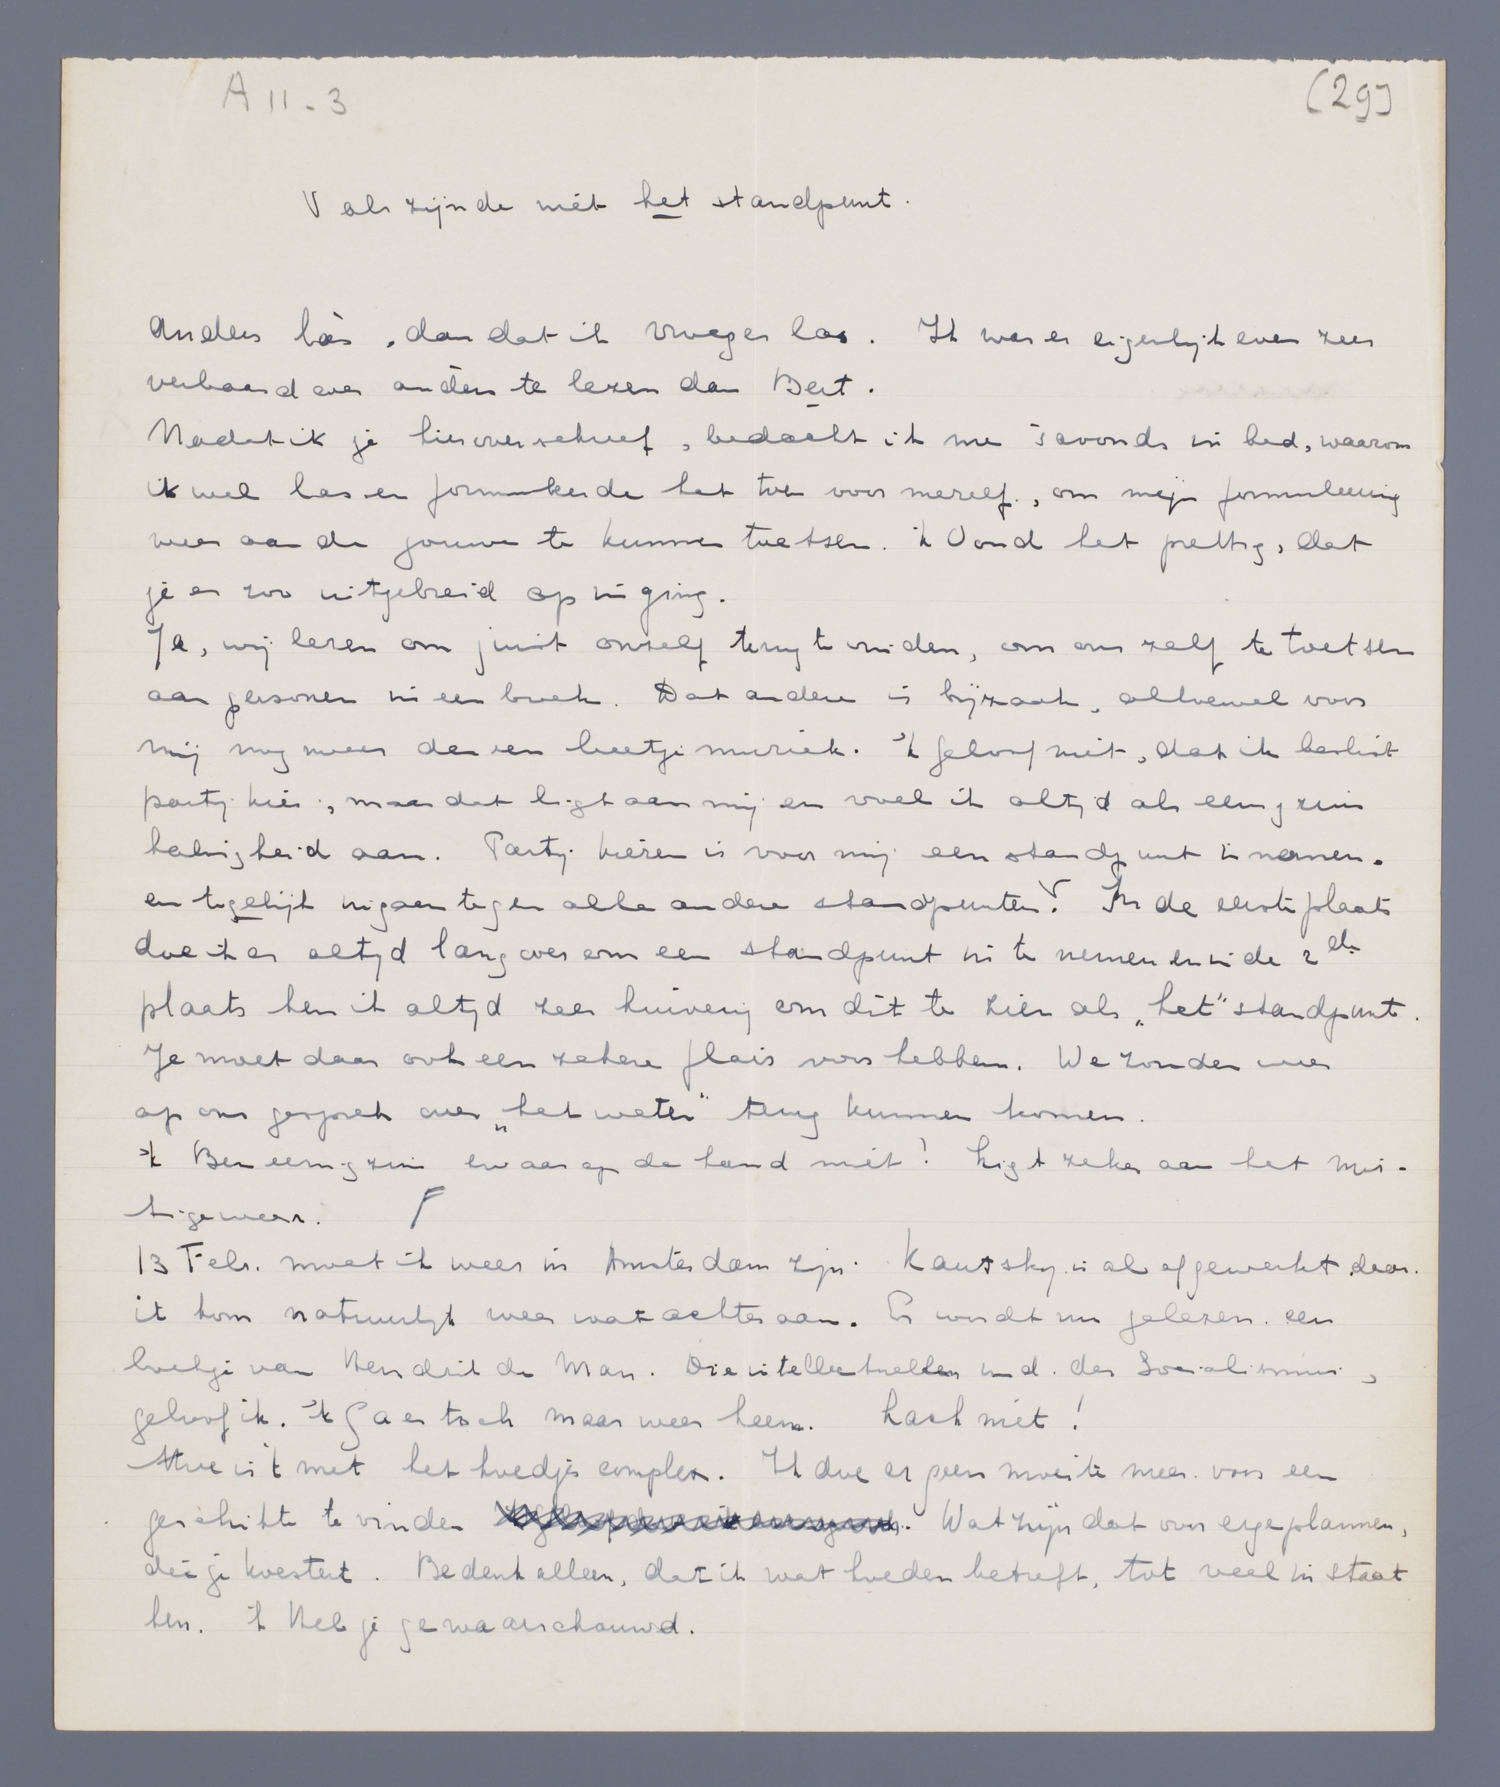 A II - 3
(29)
V als zijnde niet het standpunt.
Anders las, dan dat ik vroeger las. Ik was er eigenlijk even zeer
verbaasd over anders te lezen dan Bert.
Nadat ik je hierover schreef, bedacht ik me 's avonds in bed, waarom
ik wel las en formuleerde het toen voor mezelf, om mijn formuleering
weer aan de jouwe te kunnen toetsen. 'k Vond het prettig, dat
je er zoo uitgebreid op in ging.
Ja, wij lezen om juist onszelf terug te vinden, om ons zelf te toetsen
aan personen in een boek. Dat andere is bijzaak, alhoewel voor
mij nog meer dan een beetje muziek. 'k Geloof niet, dat ik beslist
partij kies, maar dat ligt aan mij en voel ik altijd als eenigszins
halfheid aan. Partij kiezen is voor mij een standpunt innemen.
en tegelijk ingaan tegen alle andere standpunten V. In de eerste plaats
doe ik er altijd lang over om een standpunt in te nemen en in de 2de
plaats ben ik altijd zeer huiverig om dit te zien als „het" standpunt.
Je moet daar ook een zekere flair voor hebben. We zouden weer
op ons gesprek over „het weten" terug kunnen komen.
'k Ben eenigszins zwaar op de hand niet! Ligt zeker aan het mis-
tige weer.
13 Febr. moet ik weer in Amsterdam zijn. Kautsky is al afgewerkt, daar
ik kom natuurlijk weer wat achteraan. Er wordt nu gelezen een
boekje van Hendrik de Man. Die intellectuellen und der Socialismus,
geloof ik. 'k Ga er toch maar weer heen. Lach niet!
Hoe is 't met het hoedjes complex. Ik doe er geen moeite meer voor een
geschikte te vinden. Wat zijn dat voor enge plannen,
die je koestert. Bedenk alleen, dat ik wat hoeden betreft, tot veel in staat
ben. 'k Heb je gewaarschouwd.